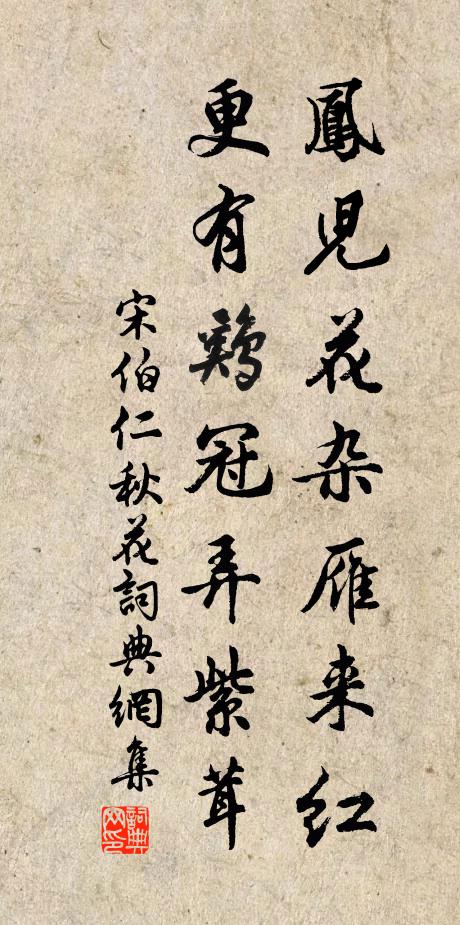 鳳児花杂雁来红
更有鷄冠弄紫茸
宋伯仁秋花詞典網集
詞典网印